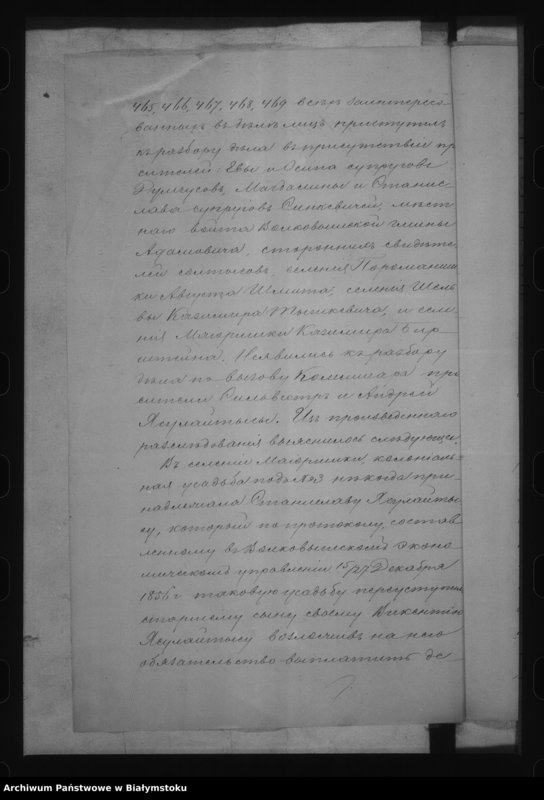 465, 466, 467, 468, 469 всѣхъ заинтересо-
ванныхъ въ дѣлѣ лицъ, приступилъ
къ разбору дѣла въ присутствіи пр
сителей: Евы и Осипа супруговъ
Магдалины и Станис-
лава супруговъ Синкевичей, мѣст
наго войта Волковышской гмины
Адамовича, стороннихъ свидѣте
лей солтысовъ: селенія
ки Августа Шмита, селенія Шель
вы Казимира Тышкевича, и селе
нія Казимира
штейна. Неявились къ разбору
дѣла по вызову Коммисара про
сители Сильвестръ и Андрей
Ясулайтысы. Изъ произведеннаго
разслѣдованія выяснилось слѣдующее.
Въ селеніи колоніаль-
ная усадьба подъ №3 нѣкогда при-
надлежала Станиславу Ясулайты-
су, который по протоколу, состав-
ленному въ Волковышскомъ эконо
мическомъ управленіи 15/27 Декабря
1856 г таковую усадьбу переуступилъ
старшему сыну своему Викентію
Ясулайтысу возложивъ на него
обязательство выплатить де-
Archiwum Państwowe w Białymstoku